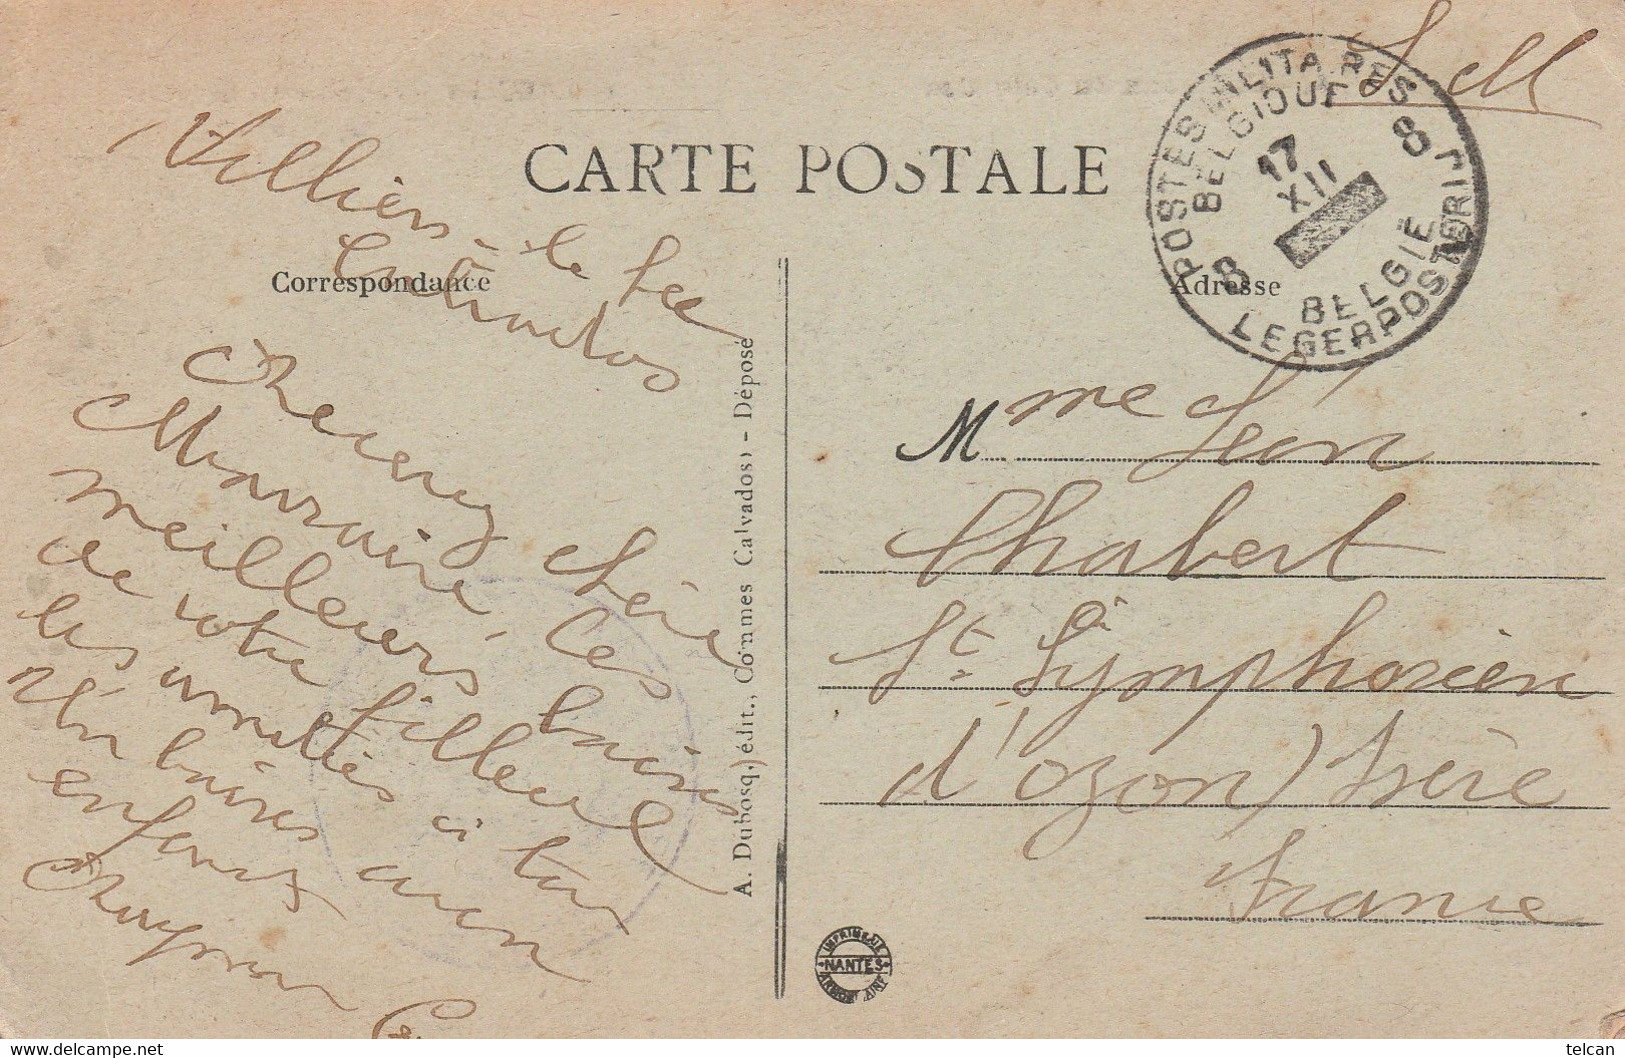 S M
CARTE POSTALE
POSTES MILITAIRES
BELGIQUE
8
17
XII
8
BELGIË
LEGERPOSTERIJ
Villiers-le Sec
Calvados
Correspondance
Adresse
chère
Marraine, Les
meilleurs baisers
de votre filleul
les amitiés à ton
Un baiser aux
enfants
Mme Léon
Chabert
St Symphorien
d'Ozon) Isère
France
A. Dubosq, édit., Commes Calvados) - Déposé
IMPRIMERIE
NANTES
ARMORICAINE
https://www.delcampe.net
telcan